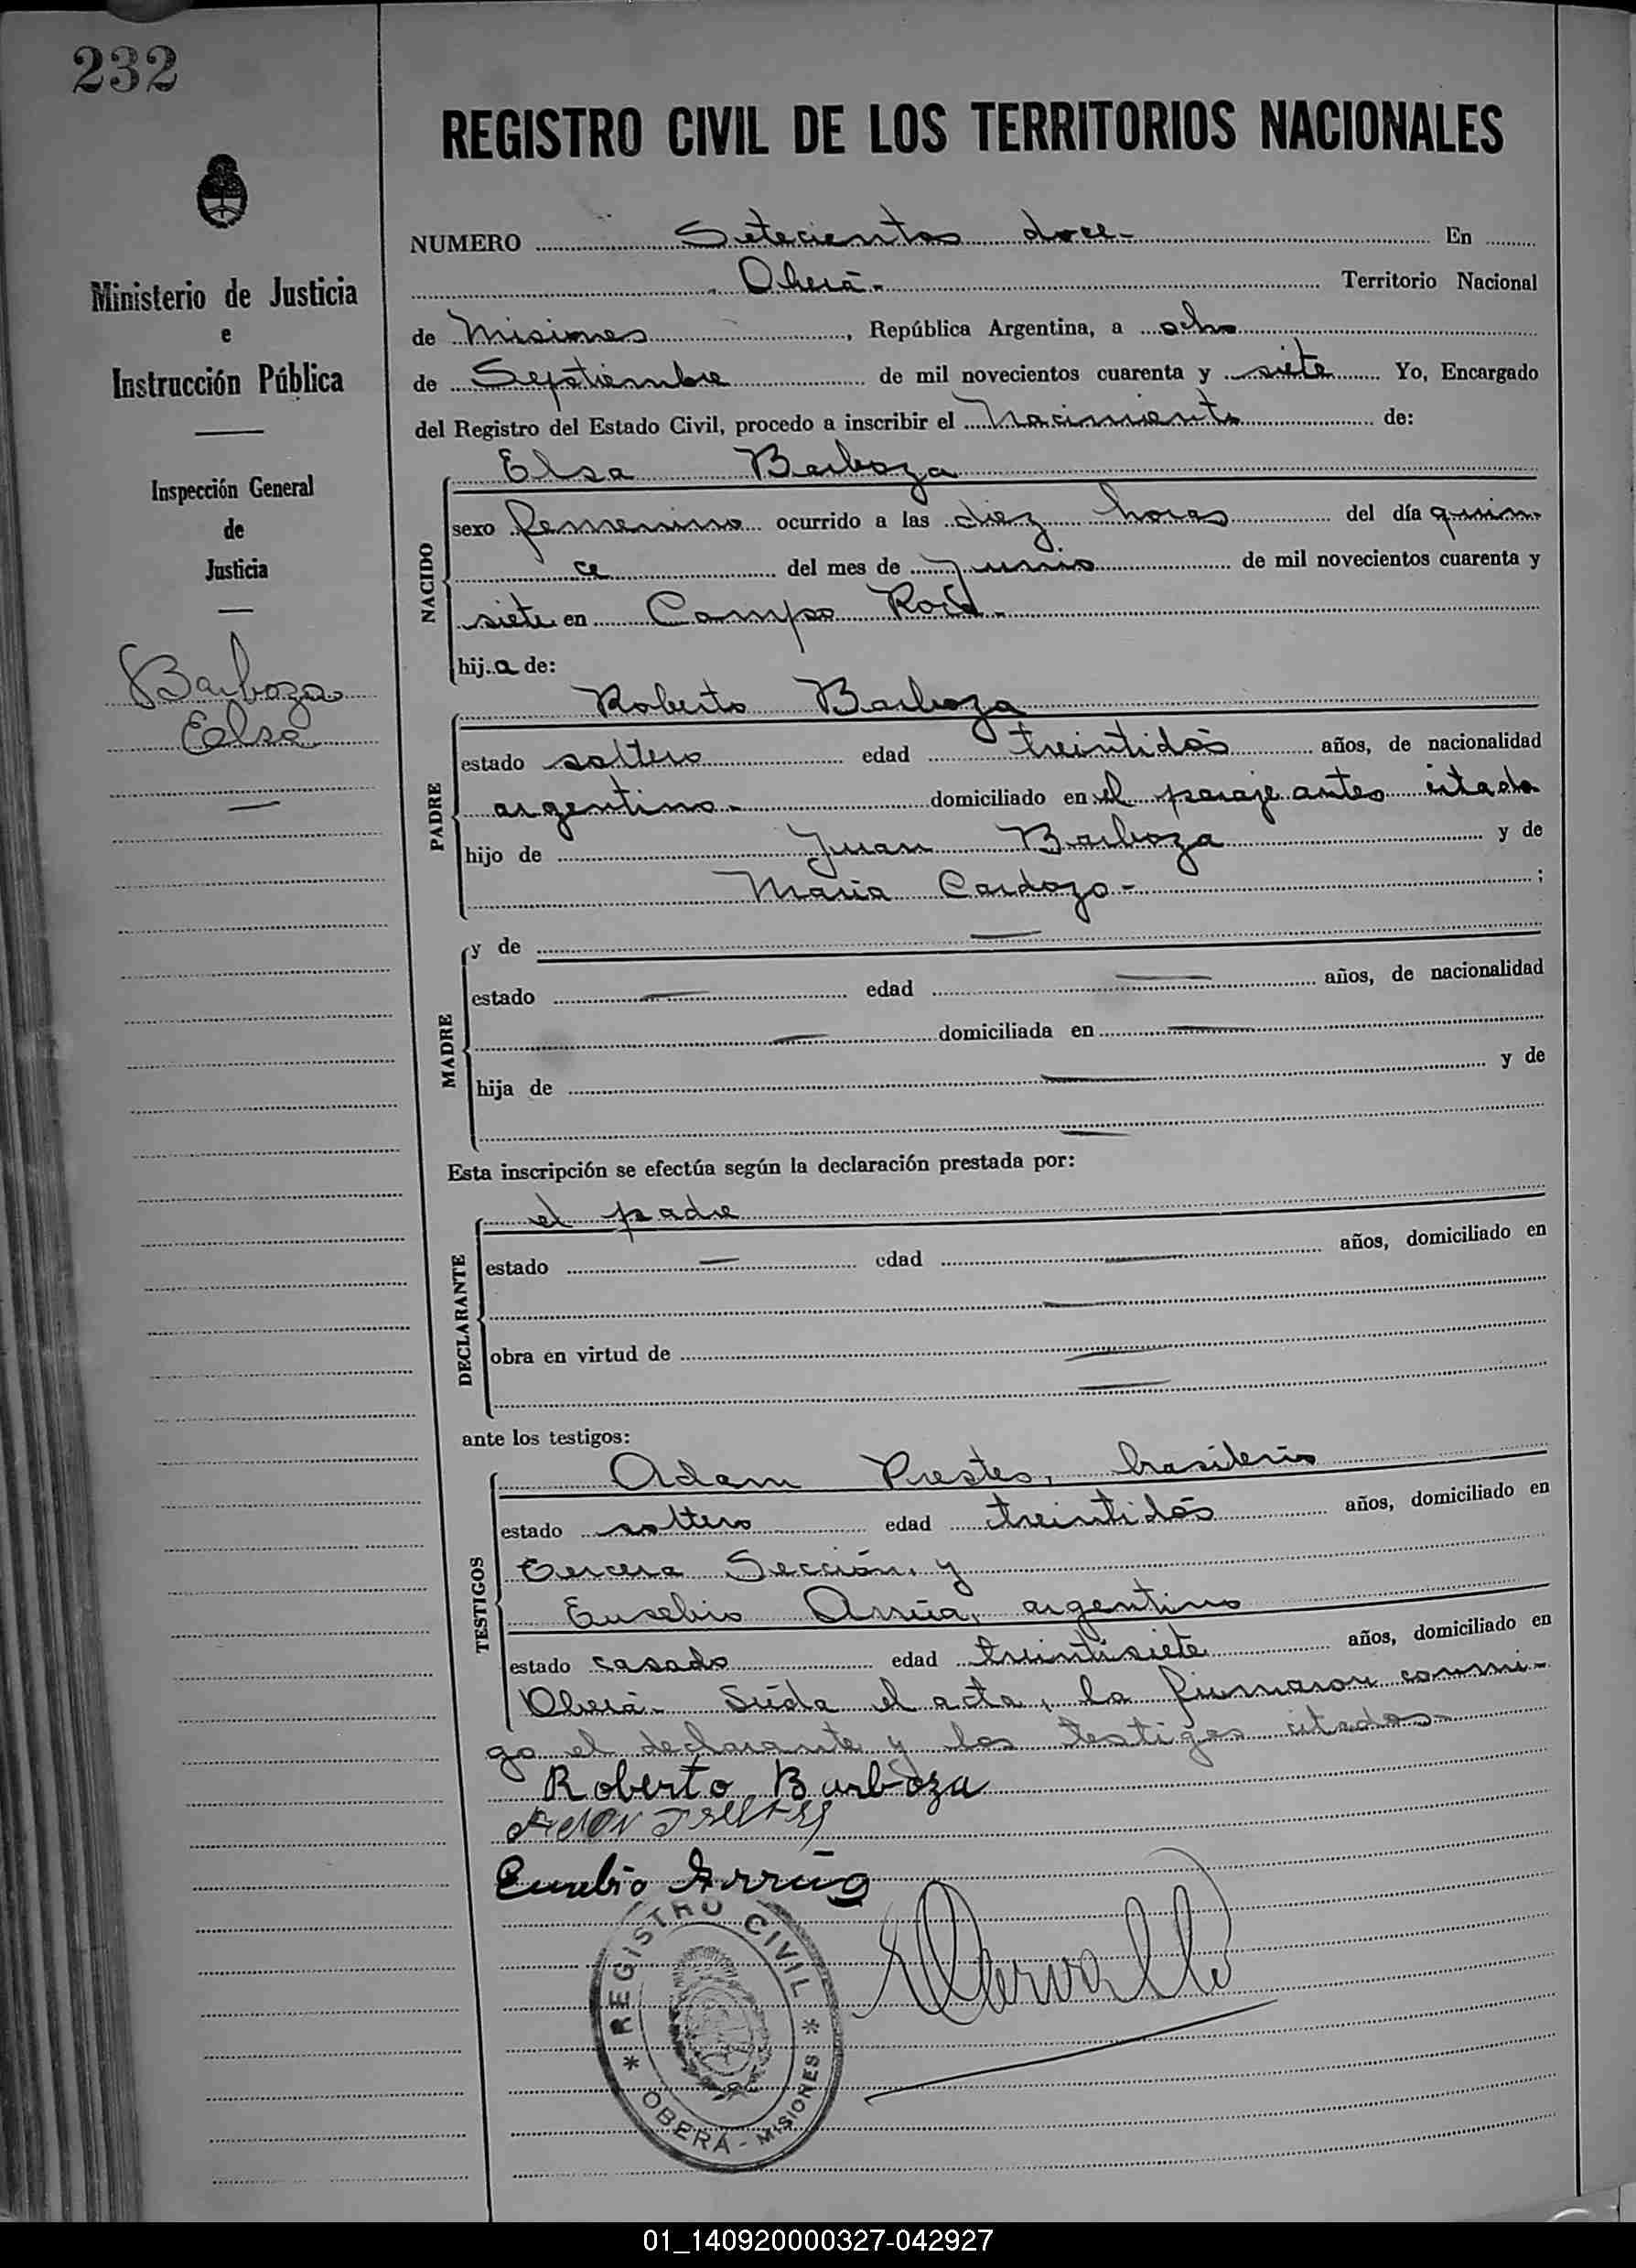 232
REGISTRO CIVIL DE LOS TERRITORIOS NACIONALES
Ministerio de Justicia
e
Instrucción Pública
Inspección General
de
Justicia
Barboza
Elsa
NUMERO Setecientos doce- En
Oberá- Territorio Nacional
de Misiones, República Argentina, a ocho
de Septiembre de mil novecientos cuarenta y siete Yo, Encargado
del Registro del Estado Civil, procedo a inscribir el Nacimiento de:
Elsa Barboza
NACIDO
sexo femenino ocurrido a las diez horas del día quin-
ce del mes de junio de mil novecientos cuarenta y
siete en Campo
hij a de:
Roberto Barboza
PADRE
estado soltero edad treintidós años, de nacionalidad
argentino- domiciliado en el paraje antes citado
hijo de Juan Barboza y de
Maria Cardozo- ;
MADRE
y de
estado edad años, de nacionalidad
domiciliada en
hija de y de
Esta inscripción se efectúa según la declaración prestada por:
DECLARANTE
el padre
estado edad años, domiciliado en
obra en virtud de
ante los testigos:
TESTIGOS
Adam Prestes, brasilero
estado soltero edad treintidós años, domiciliado en
tercera Sección, y
Eusebio Arrúa, argentino
estado casado edad treintisiete años, domiciliado en
Oberá- Leída el acta, la firmaron conmi-
go el declarante y los testigos citados-
Roberto Barboza
Eusebio Arrúa
REGISTRO CIVIL
* OBERÁ - MISIONES *
01_140920000327-042927